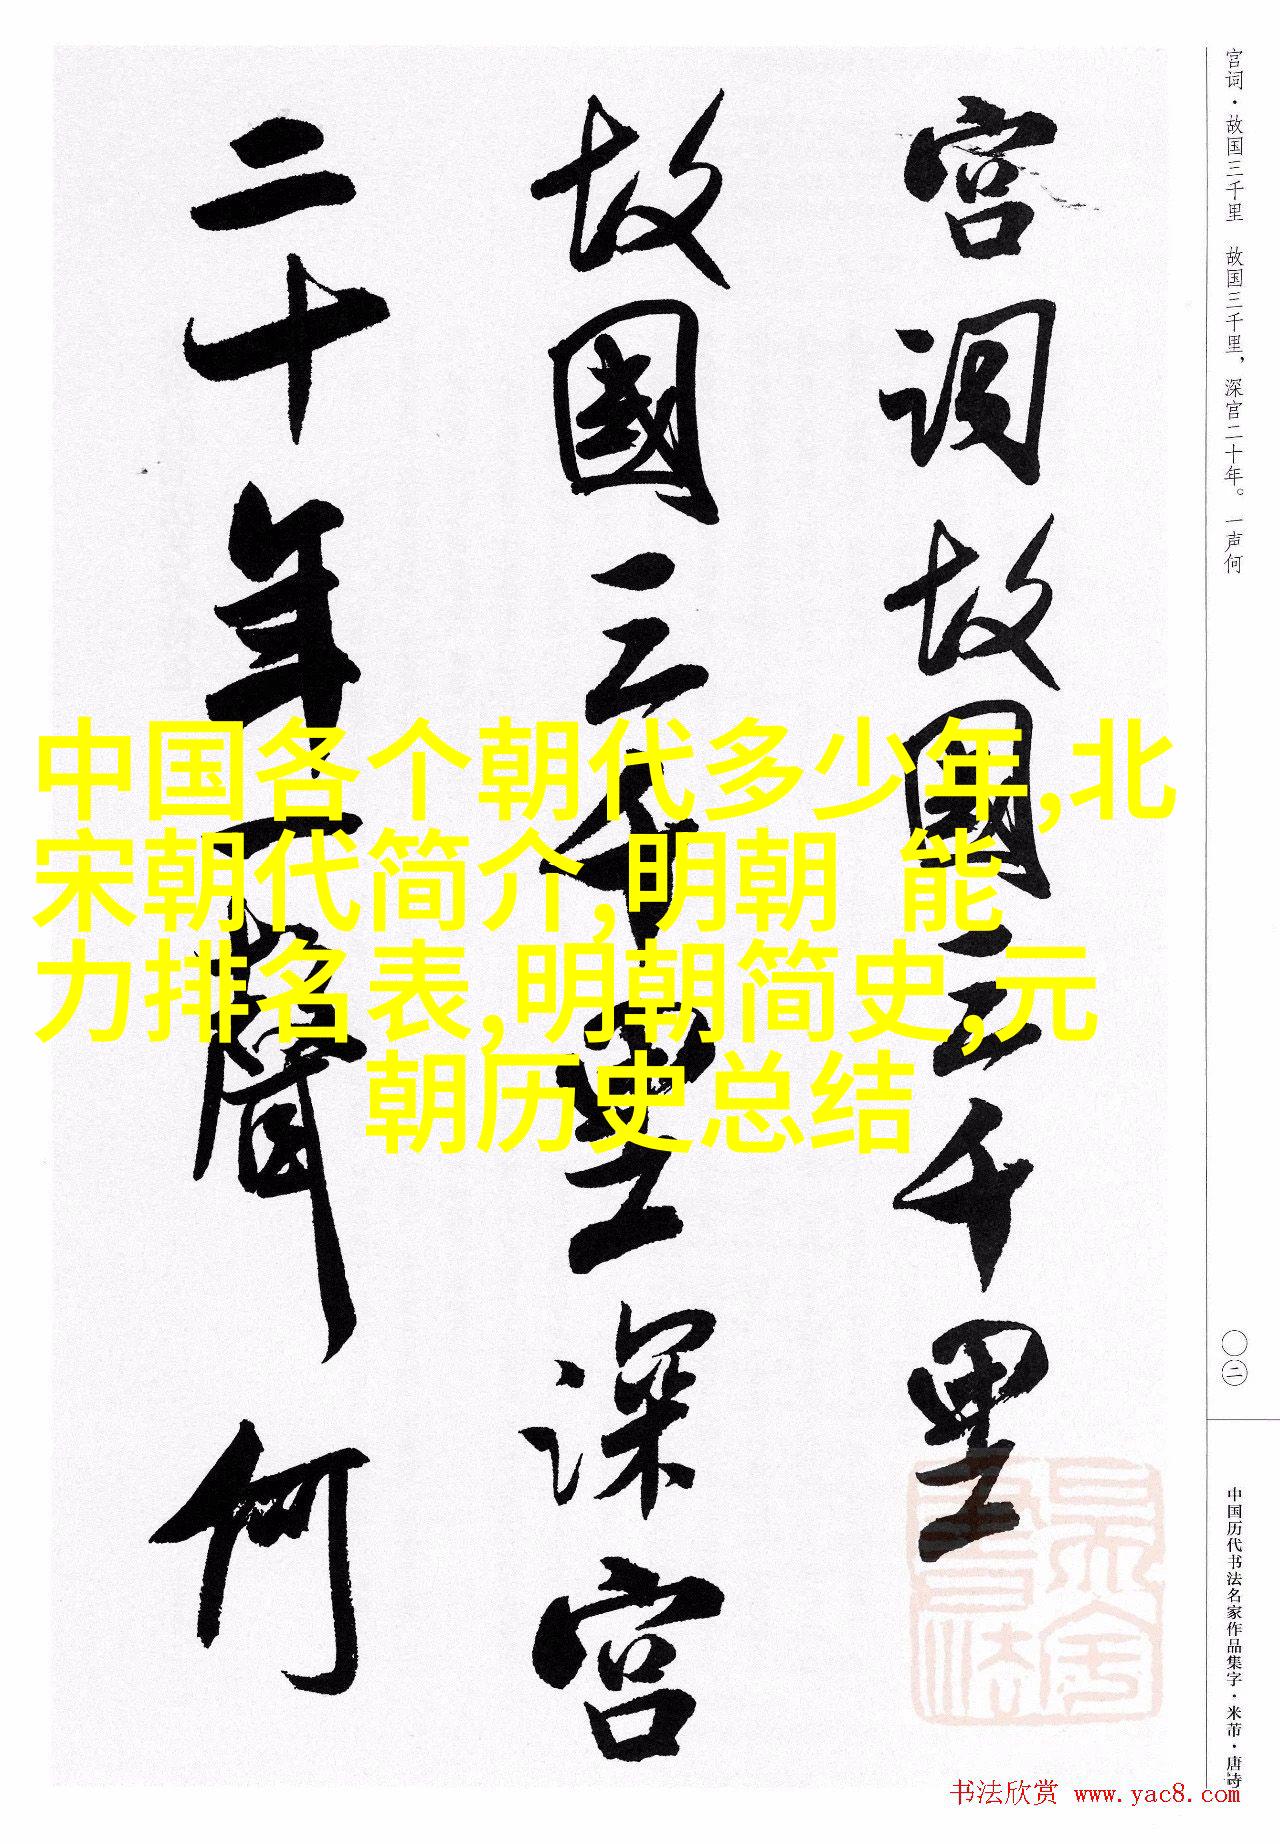 宫词·故国三千里　故国三千里，深宫二十年。一声何
宫词故國三千里
故國三千里深宫
二十年一聲何
中国各个朝代多少年,北
宋朝代简介,明朝 能
力排名表,明朝简史,元
朝历史总结
〇二
中国历代书法名家作品集字·米芾·唐诗
书法欣赏 www.yac8.com